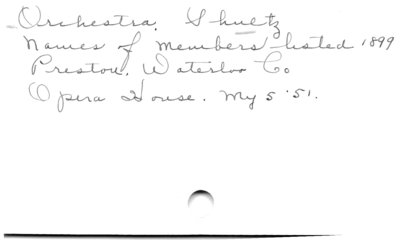 Orchestra. Shuetz
Names of members listed 1899
Preston, Waterloo Co
Opera House. My 5 '51.